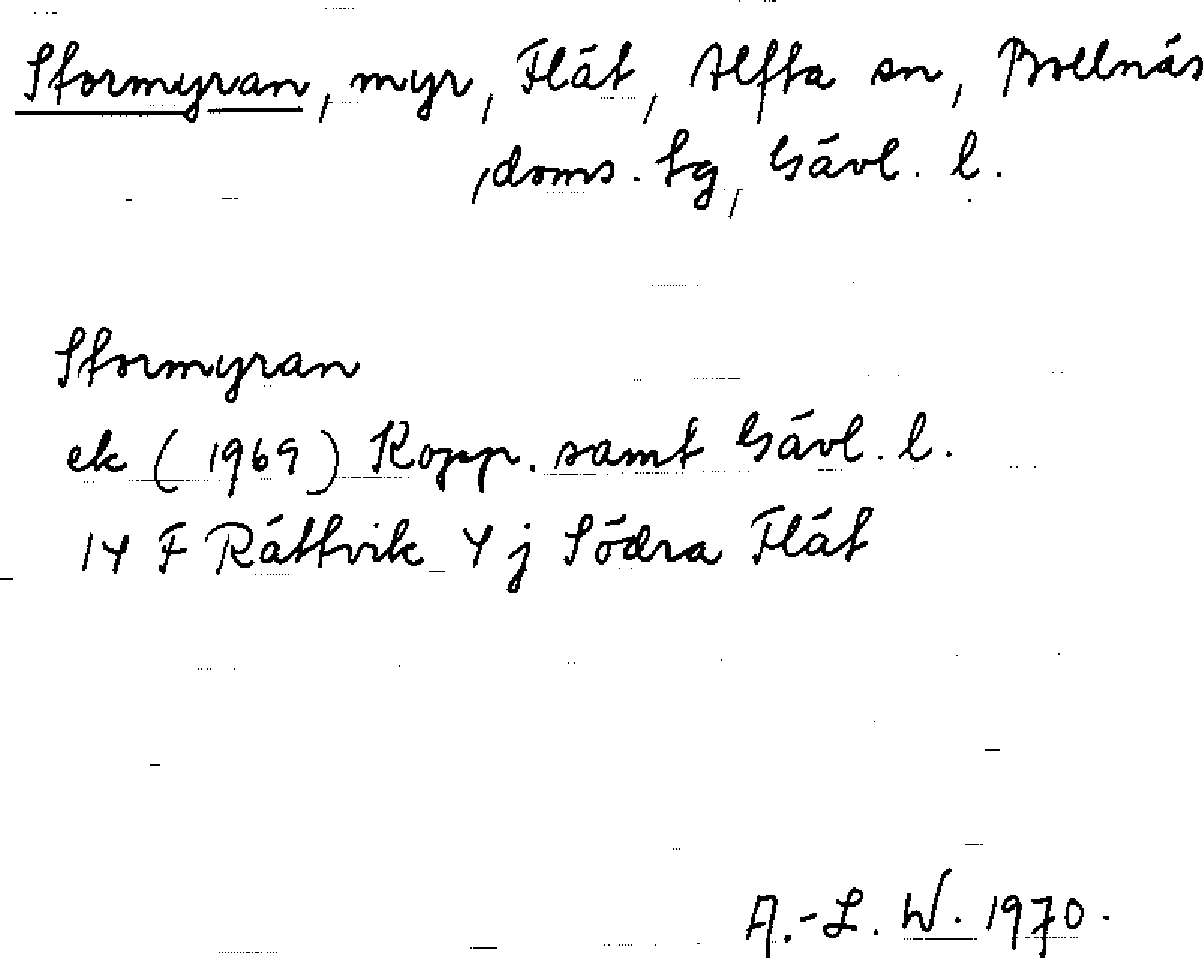 Stormyran, myr, Flät, Alfta sn, Bollnäs
doms. tg, Gävl. l.
Stormyran
ek (1969) Kopp. samt Gävl. l.
14 F Rättvik 4 j Södra Flät
A.-L. W. 1970.